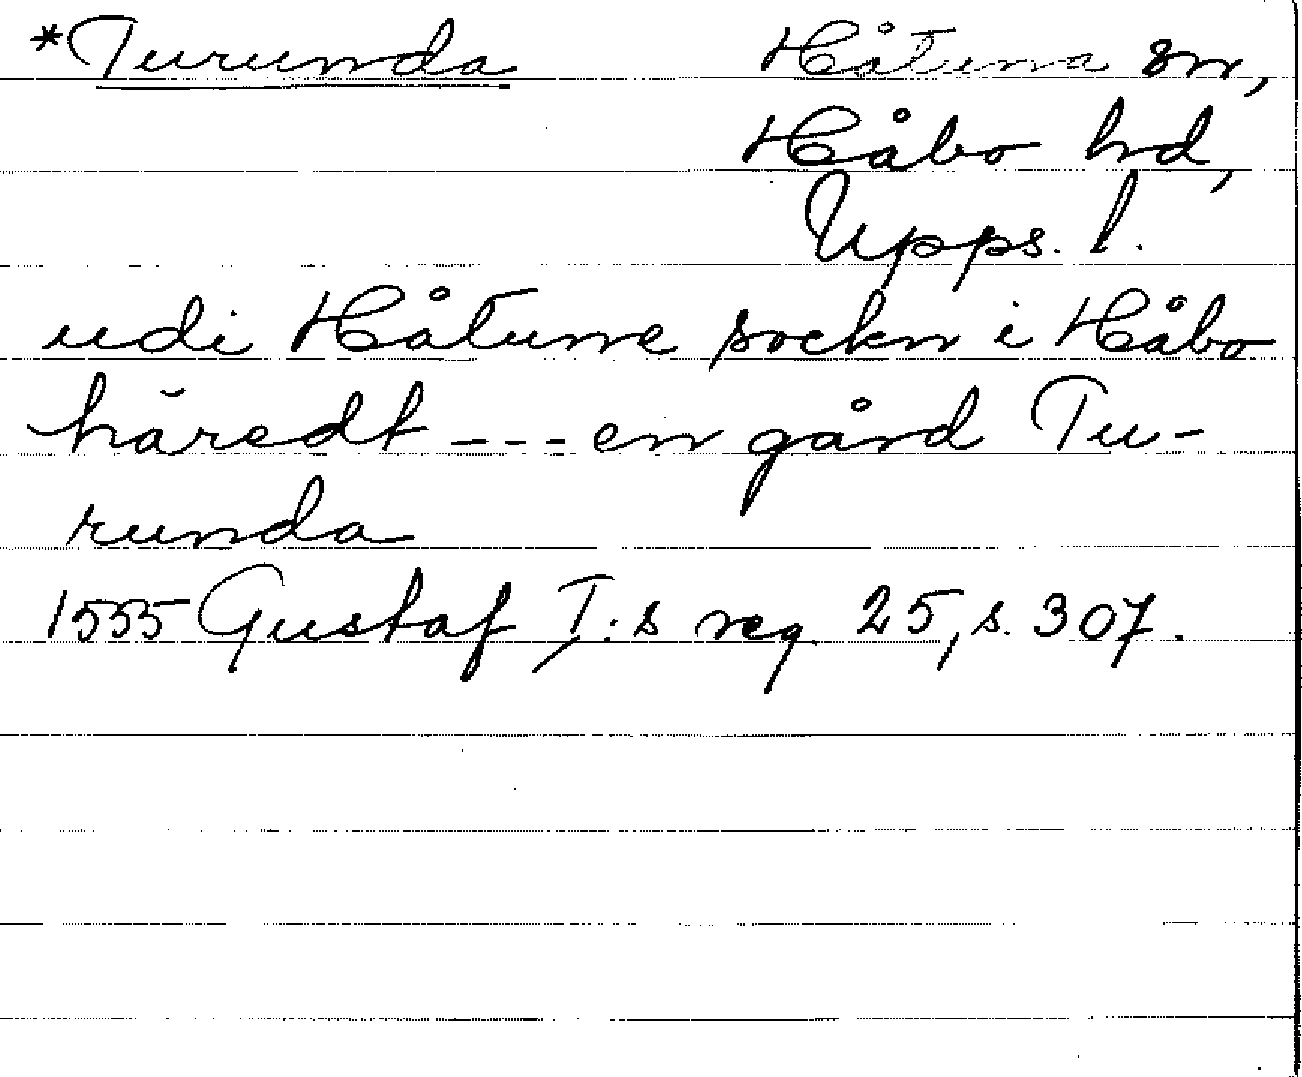 *Turunda Håtuna sn,
Håbo hd,
Upps. l.
udi Håtune sockn i Håbo
häredt --- en gård Tu-
runda
1555 Gustaf I:s reg. 25, s. 307.